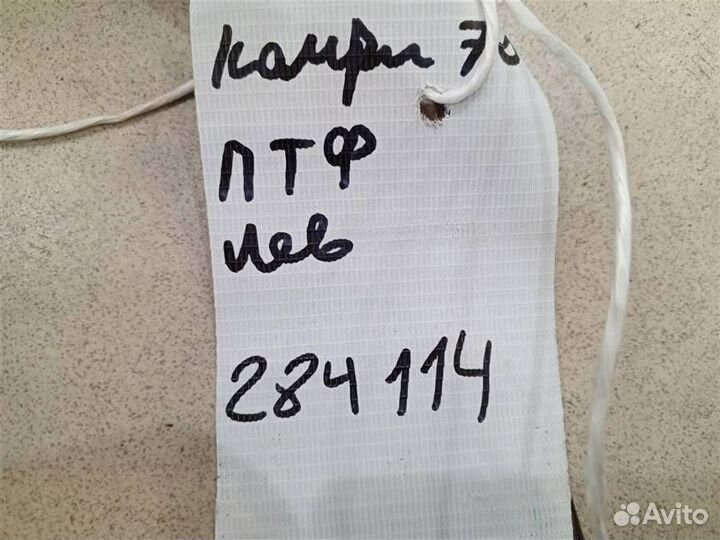 Камри 70
ПТФ
Лев
284114
Avito